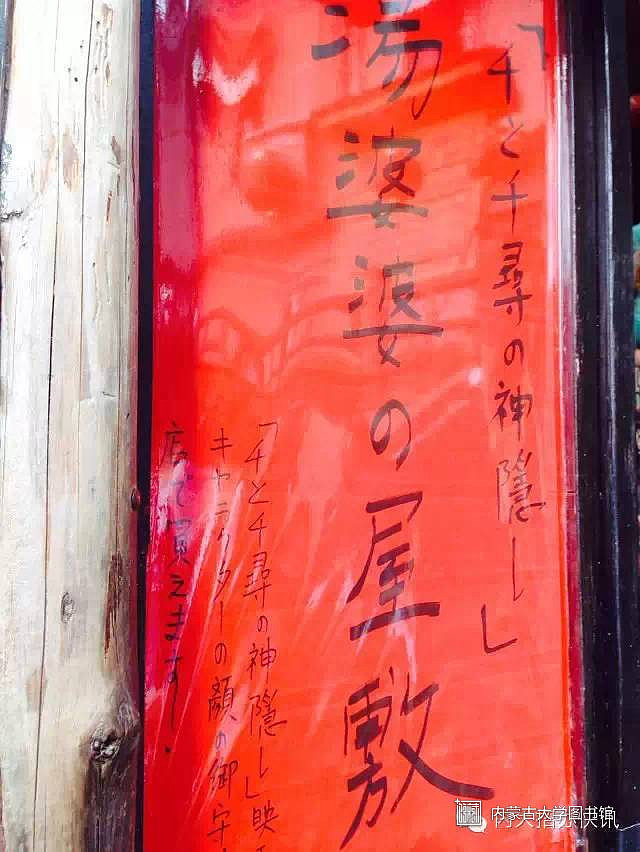 「千と千尋の神隠し」
湯婆婆の屋敷
「千と千尋の神隠し」映
キャラクターの顔の御守
店で買えます。
内蒙古大学图书馆